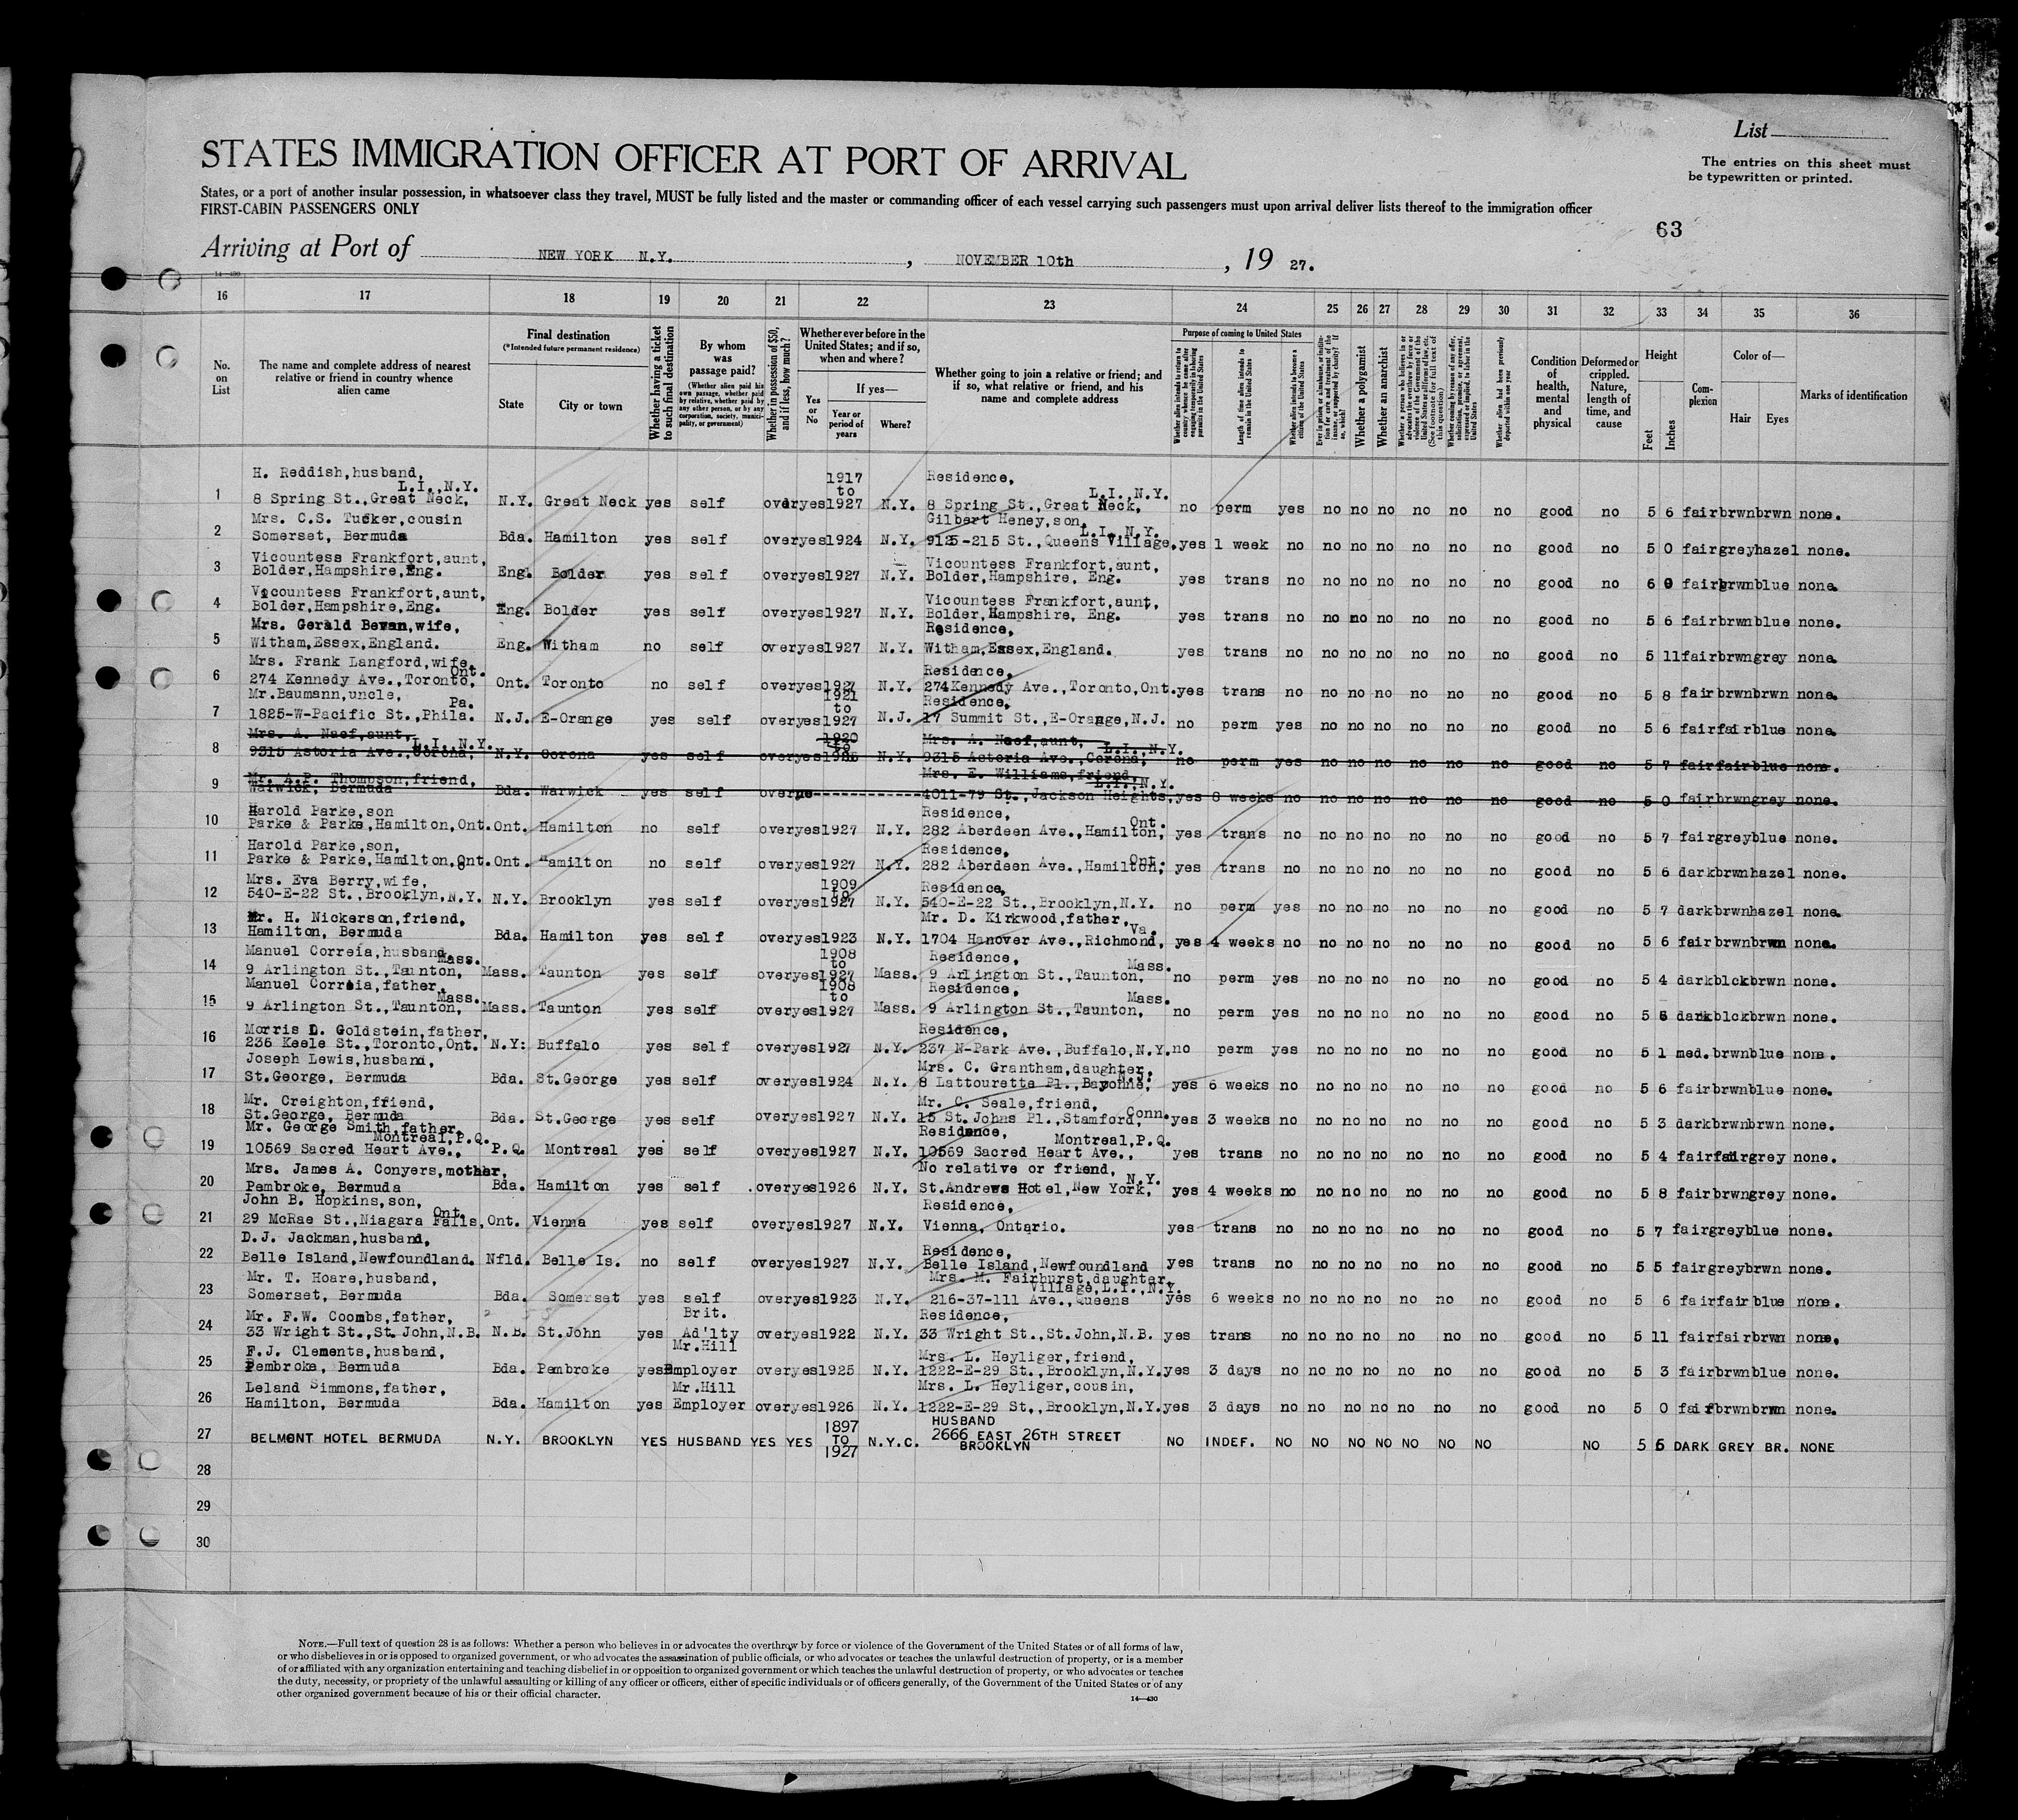 List
STATES IMMIGRATION OFFICER AT PORT OF ARRIVAL
The entries on this sheet must
be typewritten or printed.
States, or a port of another insular possession, in whatsoever class they travel, MUST be fully listed and the master or commanding officer of each vessel carrying such passengers must upon arrival deliver lists thereof to the immigration officer
FIRST-CABIN PASSENGERS ONLY
63
Arriving at Port of NEW YORK N.Y. , NOVEMBER 10th , 19 27.
16 17 18 19 20 21 22 23 24 25 26 27 28 29 30 31 32 33 34 35 36
No. on List
The name and complete address of nearest relative or friend in country whence alien came
Final destination
(*Intended future permanent residence)
State
City or town
Whether having a ticket to such final destination
By whom was passage paid?
(Whether alien paid his own passage, whether paid by relative, whether paid by any other person, or by any corporation, society, municipality, or government)
Whether in possession of $50, and if less, how much?
Whether ever before in the United States; and if so, when and where?
Yes or No
If yes—
Year or period of years
Where?
Whether going to join a relative or friend; and if so, what relative or friend, and his name and complete address
Purpose of coming to United States
Whether alien intends to return to country whence he came after engaging temporarily in laboring pursuits in the United States
Length of time alien intends to remain in the United States
Whether alien intends to become a citizen of the United States
Whether a polygamist
Whether an anarchist
Condition of health, mental and physical
Deformed or crippled. Nature, length of time, and cause
Height
Feet
Inches
Complexion
Color of—
Hair
Eyes
Marks of identification
1 H. Reddish,husband, 8 Spring St.,Great Neck, L.I.,N.Y. N.Y. Great Neck yes self over yes 1917 to 1927 N.Y. Residence, 8 Spring St.,Great Neck, L.I.,N.Y. no perm yes no no no no no no good no 5 6 fair brwn brwn none.
2 Mrs. C.S. Tucker,cousin Somerset, Bermuda Bda. Hamilton yes self over yes 1924 N.Y. Gilbert Heney,son, 9125-215 St.,Queens Village, L.I.,N.Y. yes 1 week no no no no no no no good no 5 0 fair grey hazel none.
3 Vicountess Frankfort,aunt, Bolder,Hampshire,Eng. Eng. Bolder yes self over yes 1927 N.Y. Vicountess Frankfort,aunt, Bolder,Hampshire, Eng. yes trans no no no no no no no good no 6 0 fair brwn blue none.
4 Vicountess Frankfort,aunt, Bolder,Hampshire,Eng. Eng. Bolder yes self over yes 1927 N.Y. Vicountess Frankfort,aunt, Bolder,Hampshire, Eng. yes trans no no no no no no no good no 5 6 fair brwn blue none.
5 Mrs. Gerald Bevan,wife, Witham,Essex,England. Eng. Witham no self over yes 1927 N.Y. Residence, Witham,Essex,England. yes trans no no no no no no no good no 5 11 fair brwn grey none.
6 Mrs. Frank Langford,wife, 274 Kennedy Ave.,Toronto, Ont. Ont. Toronto no self over yes 1927 N.Y. Residence, 274 Kennedy Ave.,Toronto,Ont. yes trans no no no no no no no good no 5 8 fair brwn brwn none.
7 Mr.Baumann,uncle, 1825-W-Pacific St.,Phila. Pa. N.J. E-Orange yes self over yes 1921 to 1927 N.J. Residence, 17 Summit St.,E-Orange,N.J. no perm yes no no no no no no good no 5 6 fair fair blue none.
8 Mrs. A. Naef,aunt, 9315 Astoria Ave.,Corona, L.I.,N.Y. N.Y. Corona yes self over yes 1920 to N.Y. Mrs. A. Naef,aunt, 9315 Astoria Ave.,Corona, L.I.,N.Y. no perm yes no no no no no no good no 5 7 fair fair blue none.
9 Mr. A.P. Thompson,friend, Warwick, Bermuda Bda. Warwick yes self over no ------------ Mrs. E. Williams,friend, 4011-79 St.,Jackson Heights, L.I.,N.Y. yes 8 weeks no no no no no no no good no 5 0 fair brwn grey none.
10 Harold Parke,son Parke & Parke,Hamilton,Ont. Ont. Hamilton no self over yes 1927 N.Y. Residence, 282 Aberdeen Ave.,Hamilton, Ont. yes trans no no no no no no no good no 5 7 fair grey blue none.
11 Harold Parke,son, Parke & Parke,Hamilton,Ont. Ont. Hamilton no self over yes 1927 N.Y. Residence, 282 Aberdeen Ave.,Hamilton, Ont. yes trans no no no no no no no good no 5 6 dark brwn hazel none.
12 Mrs. Eva Berry,wife, 540-E-22 St.,Brooklyn,N.Y. N.Y. Brooklyn yes self over yes 1909 to 1927 N.Y. Residence, 540-E-22 St.,Brooklyn,N.Y. no perm yes no no no no no no good no 5 7 dark brwn hazel none.
13 Mr. H. Nickerson,friend, Hamilton, Bermuda Bda. Hamilton yes self over yes 1923 N.Y. Mr. D. Kirkwood,father, 1704 Hanover Ave.,Richmond, Va. yes 4 weeks no no no no no no no good no 5 6 fair brwn brwn none.
14 Manuel Correia,husband, 9 Arlington St.,Taunton, Mass. Mass. Taunton yes self over yes 1908 to 1927 Mass. Residence, 9 Arlington St.,Taunton, Mass. no perm yes no no no no no no good no 5 4 dark blck brwn none.
15 Manuel Correia,father, 9 Arlington St.,Taunton, Mass. Mass. Taunton yes self over yes 1908 to 1927 Mass. Residence, 9 Arlington St.,Taunton, Mass. no perm yes no no no no no no good no 5 dark blck brwn none.
16 Morris D. Goldstein,father, 236 Keele St.,Toronto,Ont. N.Y: Buffalo yes self over yes 1927 N.Y. Residence, 237 N-Park Ave.,Buffalo,N.Y. no perm yes no no no no no no good no 5 1 med. brwn blue none.
17 Joseph Lewis,husband, St.George, Bermuda Bda. St.George yes self over yes 1924 N.Y. Mrs. C. Grantham,daughter, 8 Lattourette Pl.,Bayonne, N.J. yes 6 weeks no no no no no no no good no 5 6 fair brwn blue none.
18 Mr. Creighton,friend, St.George, Bermuda Bda. St.George yes self over yes 1927 N.Y. Mr. C. Seale,friend, 15 St. Johns Pl.,Stamford, Conn. yes 3 weeks no no no no no no no good no 5 3 dark brwn brwn none.
19 Mr. George Smith,father, 10569 Sacred Heart Ave., Montreal,P.Q. P.Q. Montreal yes self over yes 1927 N.Y. Residence, 10569 Sacred Heart Ave., Montreal,P.Q. yes trans no no no no no no no good no 5 4 fair fair grey none.
20 Mrs. James A. Conyers,mother, Pembroke, Bermuda Bda. Hamilton yes self .over yes 1926 N.Y. No relative or friend, St.Andrews Hotel,New York, N.Y. yes 4 weeks no no no no no no no good no 5 8 fair brwn grey none.
21 John B. Hopkins,son, 29 McRae St.,Niagara Falls, Ont. Ont. Vienna yes self over yes 1927 N.Y. Residence, Vienna, Ontario. yes trans no no no no no no no good no 5 7 fair grey blue none.
22 D.J. Jackman,husband, Belle Island,Newfoundland. Nfld. Belle Is. no self over yes 1927 N.Y. Residence, Belle Island,Newfoundland yes trans no no no no no no no good no 5 5 fair grey brwn none.
23 Mr. T. Hoare,husband, Somerset, Bermuda Bda. Somerset yes self over yes 1923 N.Y. Mrs. M. Fairhurst,daughter, 216-37-111 Ave.,Queens Village,L.I.,N.Y. yes 6 weeks no no no no no no no good no 5 6 fair fair blue none.
24 Mr. F.W. Coombs,father, 33 Wright St.,St.John,N.B. N.B. St.John yes Brit. Ad'lty over yes 1922 N.Y. Residence, 33 Wright St.,St.John,N.B. yes trans no no no no no no no good no 5 11 fair fair brwn none.
25 F.J. Clements,husband, Pembroke, Bermuda Bda. Pembroke yes Mr.Hill Employer over yes 1925 N.Y. Mrs. L. Heyliger,friend, 1222-E-29 St.,Brooklyn,N.Y. yes 3 days no no no no no no no good no 5 3 fair brwn blue none.
26 Leland Simmons,father, Hamilton, Bermuda Bda. Hamilton yes Mr.Hill Employer over yes 1926 N.Y. Mrs. L. Heyliger,cousin, 1222-E-29 St.,Brooklyn,N.Y. yes 3 days no no no no no no no good no 5 0 fair brwn brwn none.
27 BELMONT HOTEL BERMUDA N.Y. BROOKLYN YES HUSBAND YES YES 1897 TO 1927 N.Y.C. HUSBAND 2666 EAST 26TH STREET BROOKLYN NO INDEF. NO NO NO NO NO NO NO NO 5 DARK GREY BR. NONE
28
29
30
NOTE.—Full text of question 28 is as follows: Whether a person who believes in or advocates the overthrow by force or violence of the Government of the United States or of all forms of law,
or who disbelieves in or is opposed to organized government, or who advocates the assassination of public officials, or who advocates or teaches the unlawful destruction of property, or is a member
of or affiliated with any organization entertaining and teaching disbelief in or opposition to organized government or which teaches the unlawful destruction of property, or who advocates or teaches
the duty, necessity, or propriety of the unlawful assaulting or killing of any officer or officers, either of specific individuals or of officers generally, of the Government of the United States or of any
other organized government because of his or their official character.
14—430